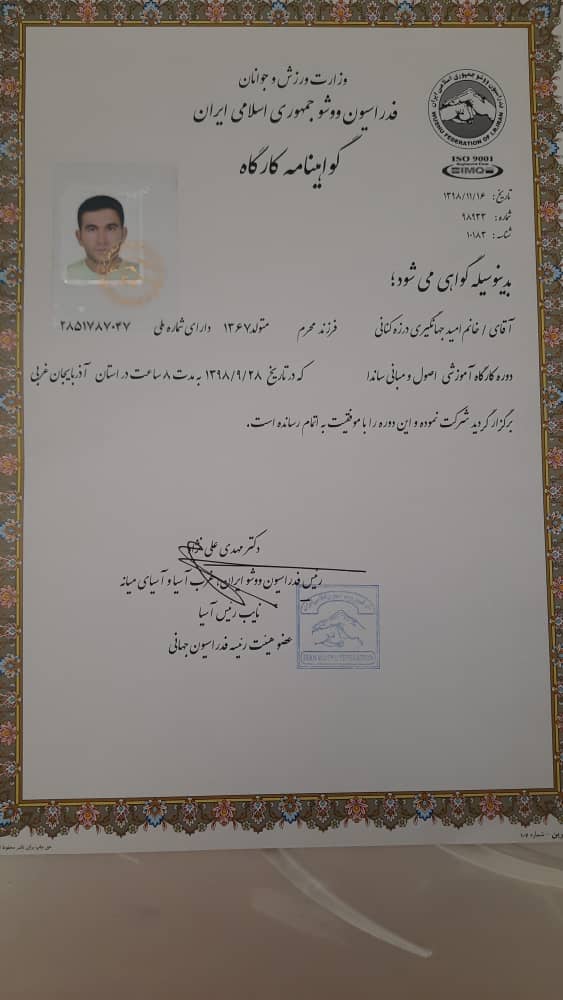 وزارت ورزش و جوانان
فدراسیون ووشو جمهوری اسلامی ایران
گواهینامه کارگاه
فدراسیون ووشو جمهوری اسلامی ایران
WUSHU FEDERATION OF I.R.IRAN
ISO 9001
IMQ
تاریخ: ۱۳۹۸/۱۱/۱۶
شماره: ۹۸۹۳۳
شناسه: ۱۰۱۸۳
بدینوسیله گواهی می شود؛
آقای / خانم امید جهانگیری درزه کنانی فرزند محرم متولد ۱۳۶۷ دارای شماره ملی ۲۸۵۱۷۸۷۰۴۷
دوره کارگاه آموزشی اصول و مبانی ساندا که در تاریخ ۱۳۹۸/۹/۲۸ به مدت ۸ ساعت در استان آذربایجان غربی
برگزار گردید شرکت نموده و این دوره را با موفقیت به اتمام رسانده است.
دکتر مهدی علی نژاد
رئیس فدراسیون ووشو ایران، غرب آسیا و آسیای میانه
نایب رئیس آسیا
عضو هیئت رئیسه فدراسیون جهانی
IRAN WUSHU FEDERATION